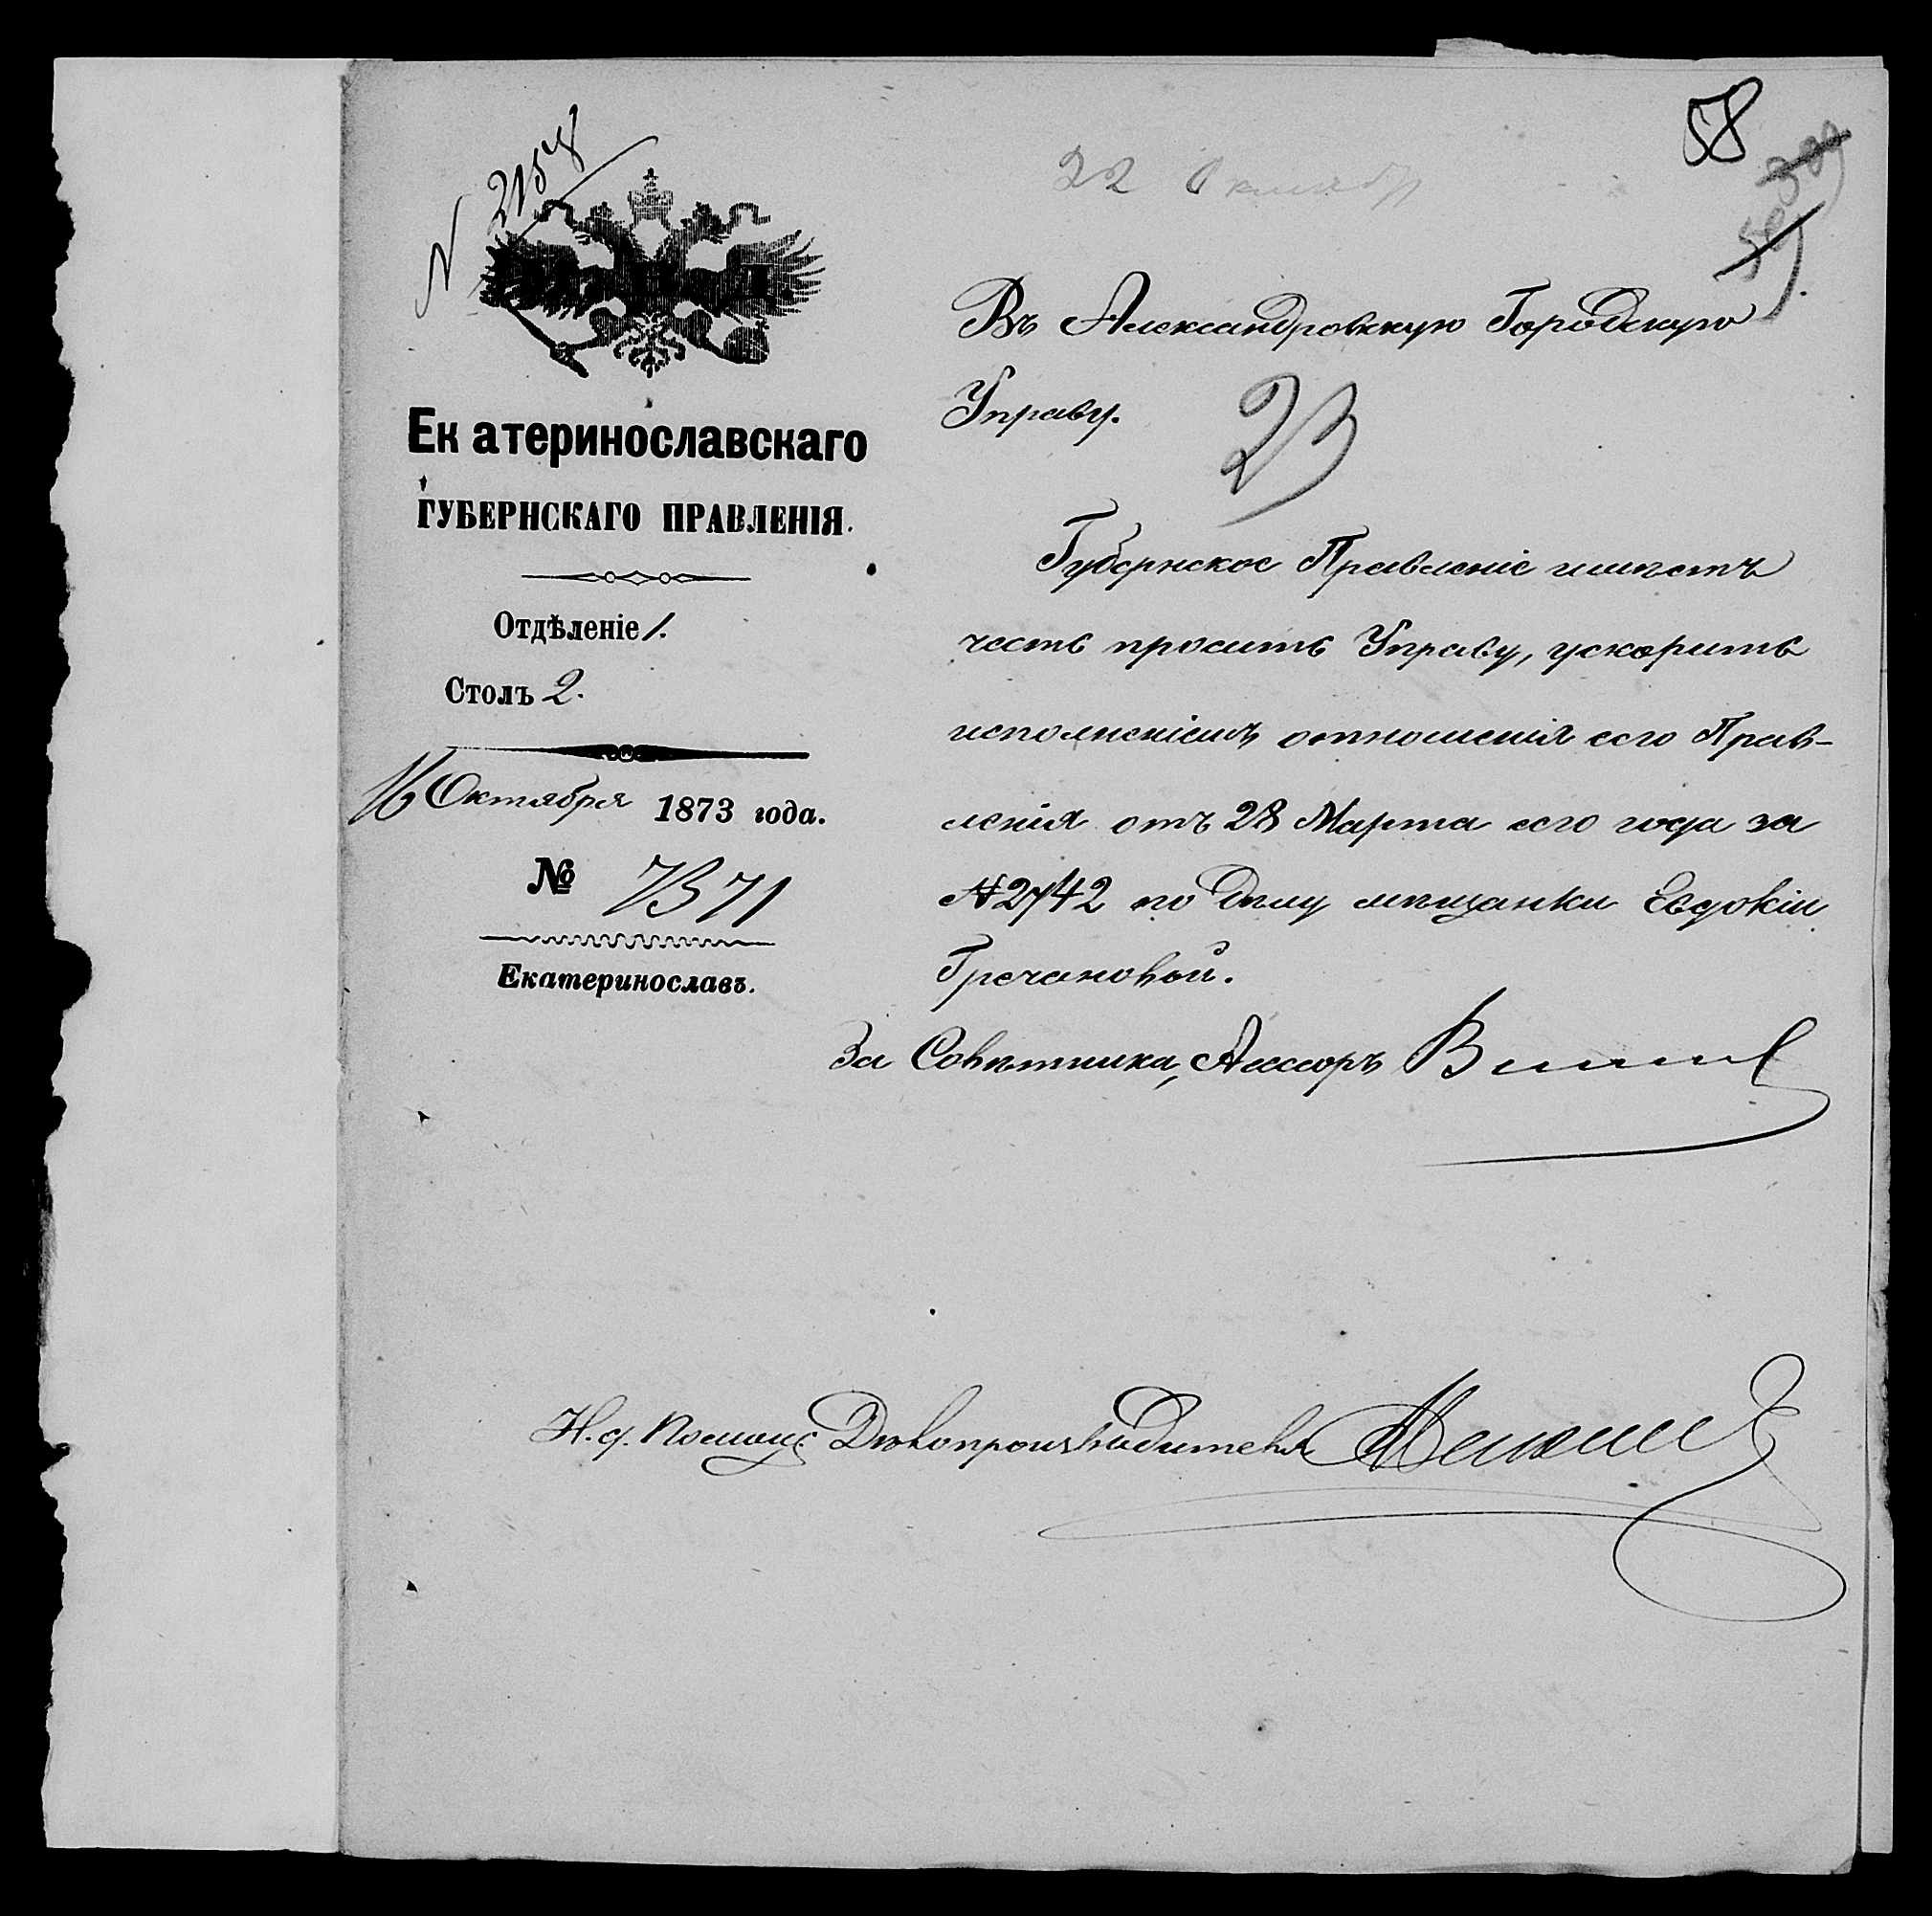 58
N 2158
22 Октябр
Екатеринославскаго
ГУБЕРНСКАГО ПРАВЛЕНІЯ.
Отдѣленіе 1.
Столъ 2.
16 Октября 1873 года.
№ 7371
Екатеринославъ.
Въ Александровскую Городскую
Управу.
23
Губернское Правленіе имѣетъ
честь просить Управу, ускорить
исполненіемъ отношенія сего Прав-
ленія отъ 28 Марта сего года за
№ 2742 по дѣлу мѣщанки Евдокіи
Гречановой.
За Совѣтника, Ассесоръ
И. д. Помощ. Дѣлопроизводителя